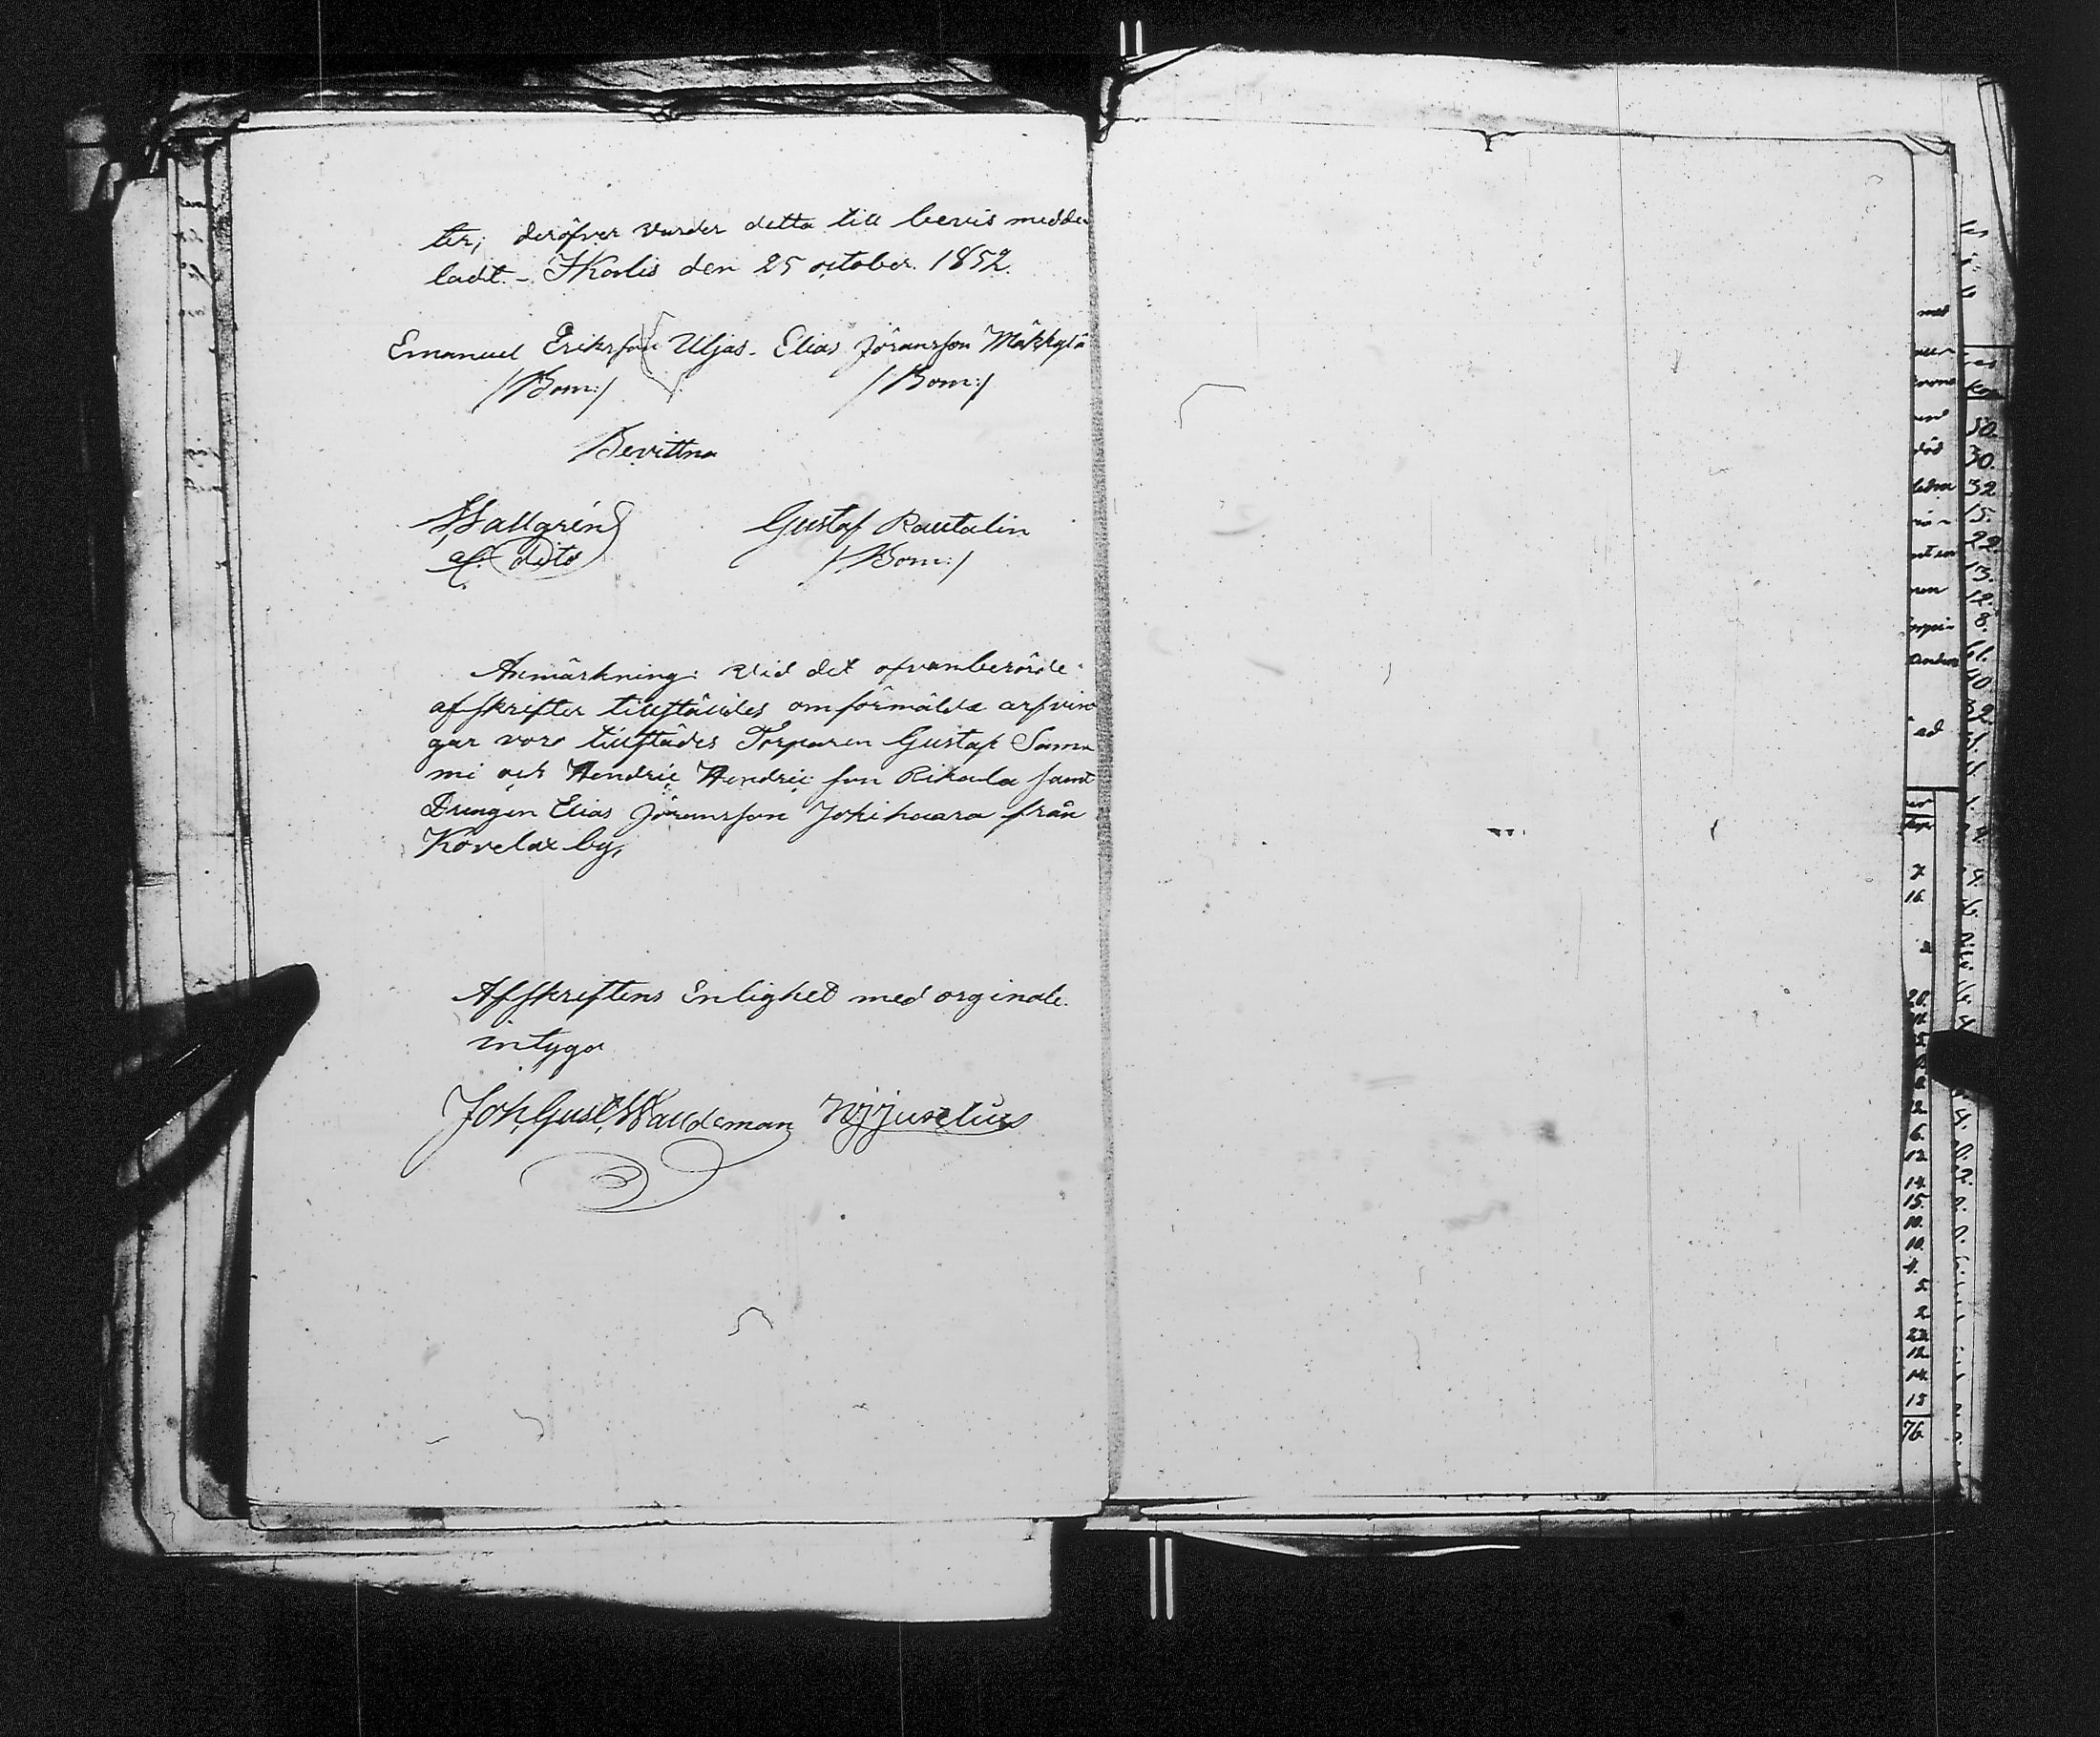 ter; deröfver varder detta till bevis medde
ladt. - Karlis den 25 october. 1852.
Emanuel Eriksson Uljas. Elias Jöransson Mäkkylä
/Bom:/ /Bom:/
Bevittna
Hallgrén Gustaf Rautalin
/Bom:/
Anmärkning: Vid det ofvanberörde
afskrifter tillstäldes omförmälda arfvin
gar voro tillstädes Torparen Gustaf Samm
mi och Hendric Hendric son Rikala samt
Drengen Elias Jöransson Jokihaara från
Kovelax by,
Afskriftens Enlighet med orginale.
intyga
Joh, Gust, Walldeman Juselius
med
ad
50.
30.
32
15.
22
13.
12.
8.
7
16.
2
20.
2.
6.
12
14.
15.
10.
10.
4.
5
2
22
12
14
13
76